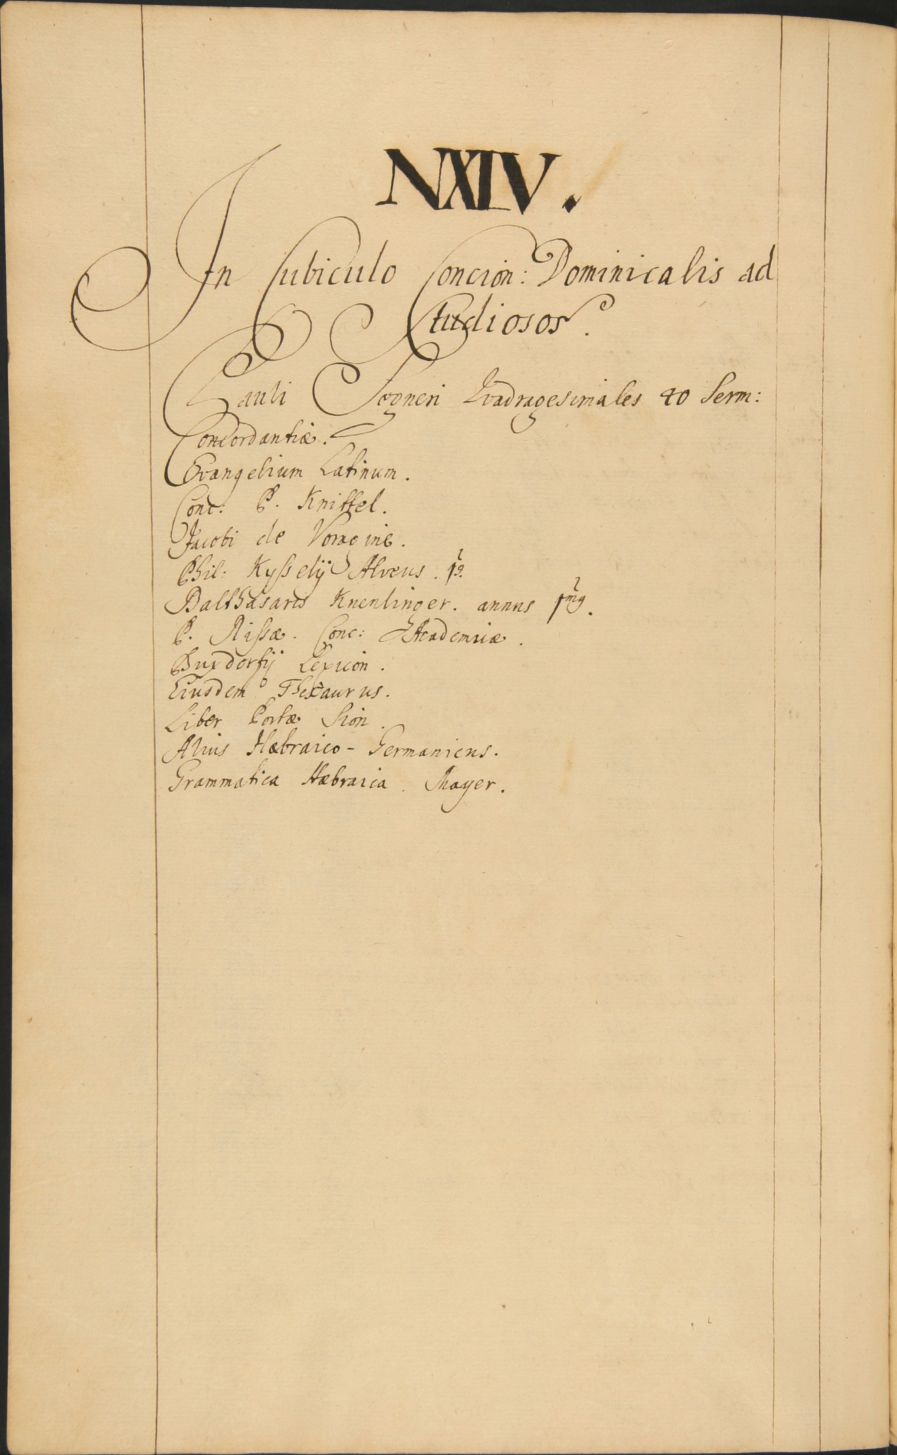 NXIV.
In Cubiculo Concion: Dominicalis ad
Studiosos.
Pauli Segneri Quadragesimales 40 Serm:
Concordantiæ.
Evangelium Latinum.
Conc: P. Kniffel.
Jacobi de Voragine.
Phil: Kysselij Alveus.
Balthasaris Knenlinger. annus 1mg.
P. Rissæ. Conc: Academicæ.
Buxdorfij Lexicon.
Eiusdem Thesaurus.
Liber Portæ Sion.
Alius Hæbraico-Germanicus.
Grammatica Hæbraica. Mayer.